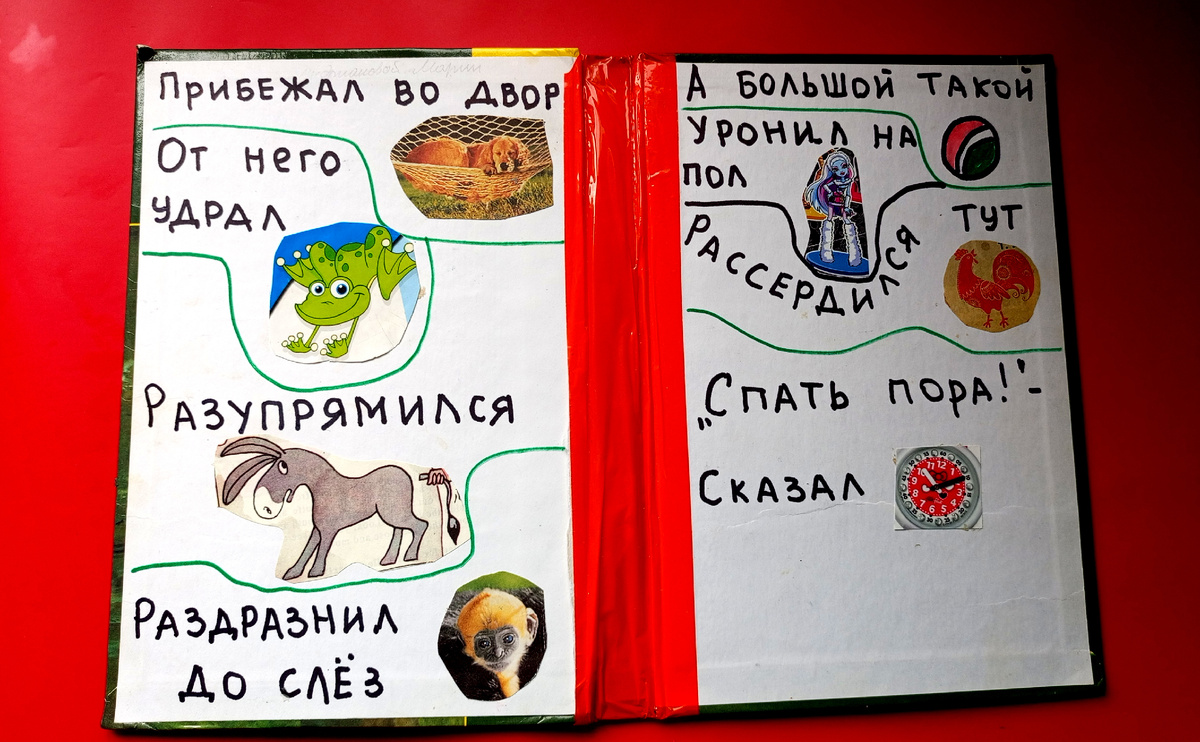 Прибежал во двор
От него
удрал
Разупрямился
Раздразнил
до слёз
А большой такой
Уронил на
пол
Рассердился тут
„Спать пора!" -
Сказал